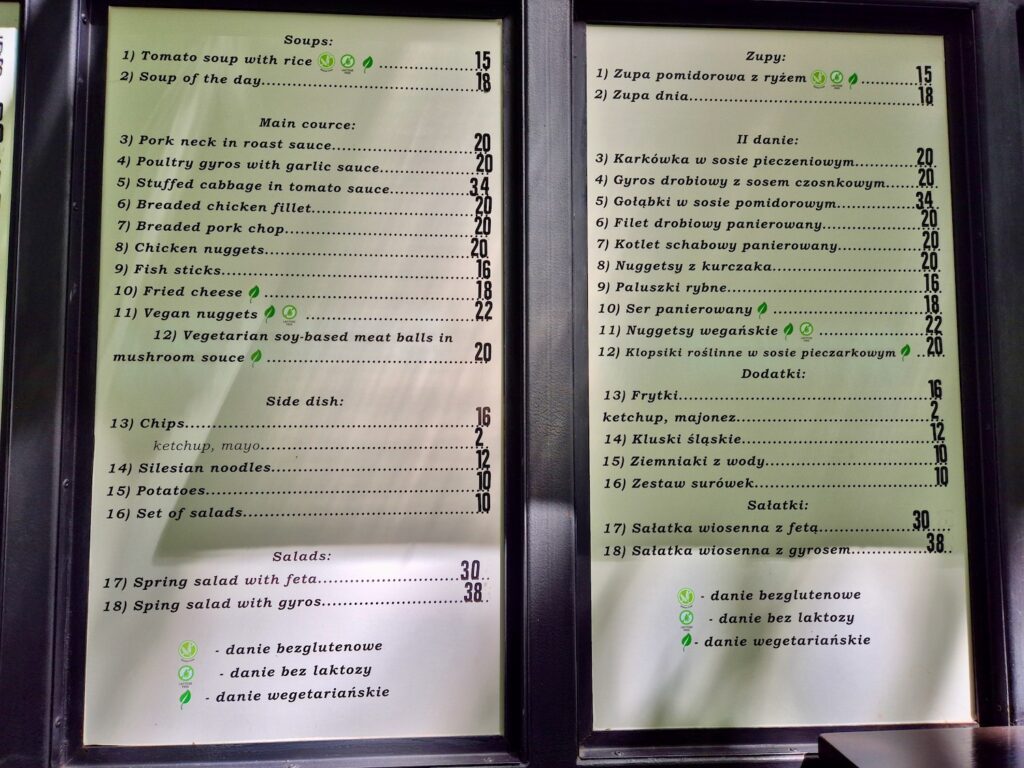 Soups:
1) Tomato soup with rice .................. 15
2) Soup of the day........................................ 18
Main cource:
3) Pork neck in roast sauce......................... 20
4) Poultry gyros with garlic sauce................ 20
5) Stuffed cabbage in tomato sauce.............. 34
6) Breaded chicken fillet............................. 20
7) Breaded pork chop................................. 20
8) Chicken nuggets.................................... 20
9) Fish sticks............................................ 16
10) Fried cheese ...................................... 18
11) Vegan nuggets .................................. 22
12) Vegetarian soy-based meat balls in
mushroom souce ..................................... 20
Side dish:
13) Chips................................................. 16
ketchup, mayo........................................ 2
14) Silesian noodles.................................. 12
15) Potatoes............................................. 10
16) Set of salads....................................... 10
Salads:
17) Spring salad with feta......................... 30
18) Sping salad with gyros........................ 38
- danie bezglutenowe
- danie bez laktozy
- danie wegetariańskie
Zupy:
1) Zupa pomidorowa z ryżem ............. 15
2) Zupa dnia............................................ 18
II danie:
3) Karkówka w sosie pieczeniowym............. 20
4) Gyros drobiowy z sosem czosnkowym....... 20
5) Gołąbki w sosie pomidorowym................. 34
6) Filet drobiowy panierowany..................... 20
7) Kotlet schabowy panierowany.................. 20
8) Nuggetsy z kurczaka............................... 20
9) Paluszki rybne........................................ 16
10) Ser panierowany .................................. 18
11) Nuggetsy wegańskie ............................ 22
12) Klopsiki roślinne w sosie pieczarkowym ... 20
Dodatki:
13) Frytki.................................................. 16
ketchup, majonez........................................ 2
14) Kluski śląskie....................................... 12
15) Ziemniaki z wody.................................. 10
16) Zestaw surówek.................................... 10
Sałatki:
17) Sałatka wiosenna z fetą......................... 30
18) Sałatka wiosenna z gyrosem.................. 38
- danie bezglutenowe
- danie bez laktozy
- danie wegetariańskie